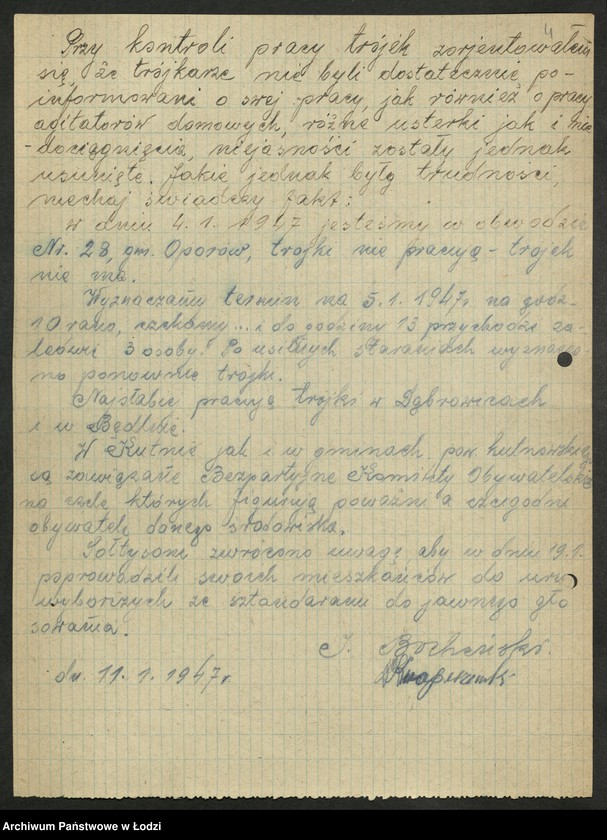 4
Przy kontroli pracy trójek zorjentowałem
się że trójkarze nie byli dostatecznie po-
informowani o swej pracy, jak również o pracy
agitatorów domowych, różne usterki jak i nie-
-dociągnięcia, niejasności zostały jednak
usunięte. Jakie jednak były trudności,
niechaj świadczy fakt:
W dniu 4.1.1947 jesteśmy w obwodzie
Nr. 28, gm. Oporów, trójki nie pracują - trójek
nie ma.
Wyznaczamy termin na 5.1.1947r na godz.
10 rano, czekamy... i do godziny 13 przychodzi za-
ledwie 3 osoby! Po usilnych staraniach wyznaczo-
no ponownie trójki.
Najsłabiej pracują trójki w Dąbrowicach
i w Bedlnie.
W Kutnie jak i w gminach pow. kutnowskiego
są zawiązane Bezpartyjne Komitety Obywatelskie
na czele których figurują poważni a czcigodni
obywatele danego środowiska.
Sołtysom zwrócono uwagę aby w dniu 19.1.
poprowadzili swoich mieszkańców do urn
wyborczych ze sztandarami do jawnego gło
sowania.
J. Bocheński.
dn. 11.1.1947r
Archiwum Państwowe w Łodzi